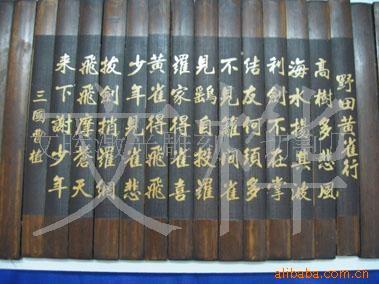 野田黄雀行
高樹多悲風
海水揚其波
利劍不在掌
結友何須多
不見籬間雀
見鷂自投羅
羅家得雀喜
黄雀得飛飛
少年見雀悲
拔劍捎羅網
飛飛摩蒼天
来下謝少年
三國曹植
文桦
阿里巴巴
alibaba.com.cn